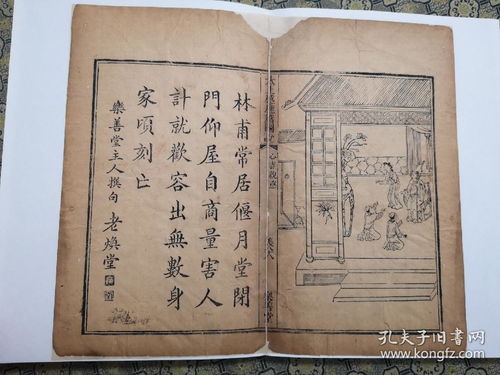 林甫常居偃月堂閉
門仰屋自商量害人
計就歡容出無數身
家頃刻亡
樂善堂主人撰句 老煥堂
孔夫子旧书网
www.kongfz.com